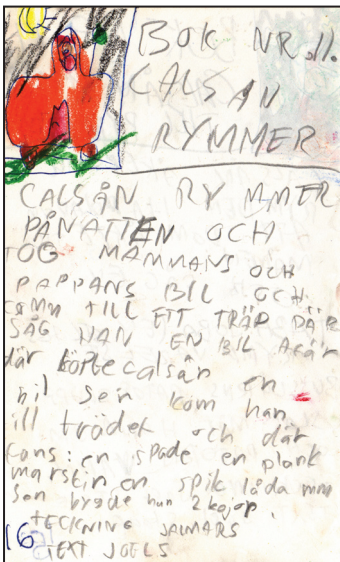 BOK NR 11.
CALSÅN
RYMMER
CALSÅN RYMMER
PÅNATTEN OCH
TOG MAMMANS OCH
PAPPANS BIL OCH
COMM TILL ETT TRÄD DÄR
SÅG HAN EN BIL AFÄR
där köpte calsån en
bil sen kom han
till trödet och där
fans: en spade en plank
marstin en spik låda mm
Sen bygde han 2 kojor.
TECKNING JALMARS
16 TEXT JOELS